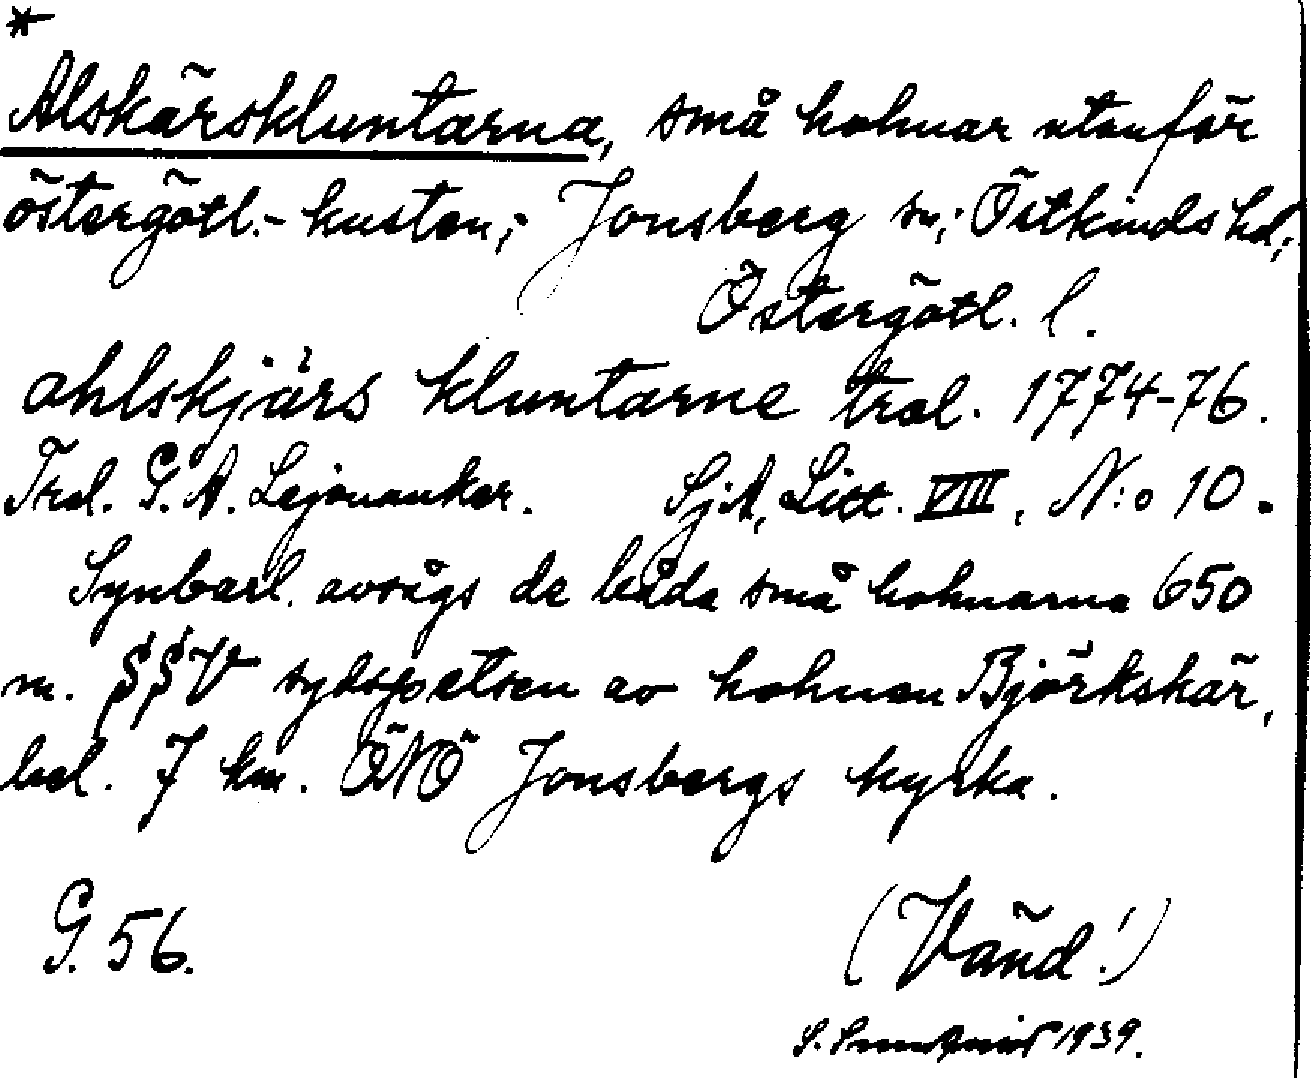 *
Alskärskluntarna, små holmar utanför
östergötl.- kusten; Jonsberg sn; Östkinds hd;
Östergötl. l.
ahlskjärs kluntarne trol. 1774-76.
Trol. G. A. Lejonanker. SjA, Litt. VIII, N:o 10.
Synbarl. avsågs de båda små holmarna 650
m. SSV sydspetsen av holmen Björkskär,
bel. 7 km. ÖNÖ Jonsbergs kyrka.
G. 56.
(Vänd!)
S. 1939.